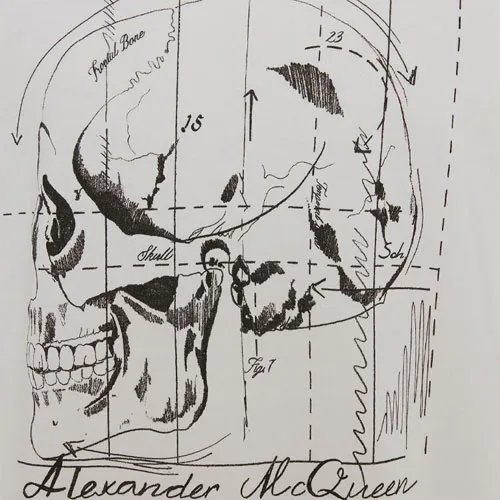 23
Frontal Bone
15
Skull
Sch
Fig. 7
Alexander McQueen